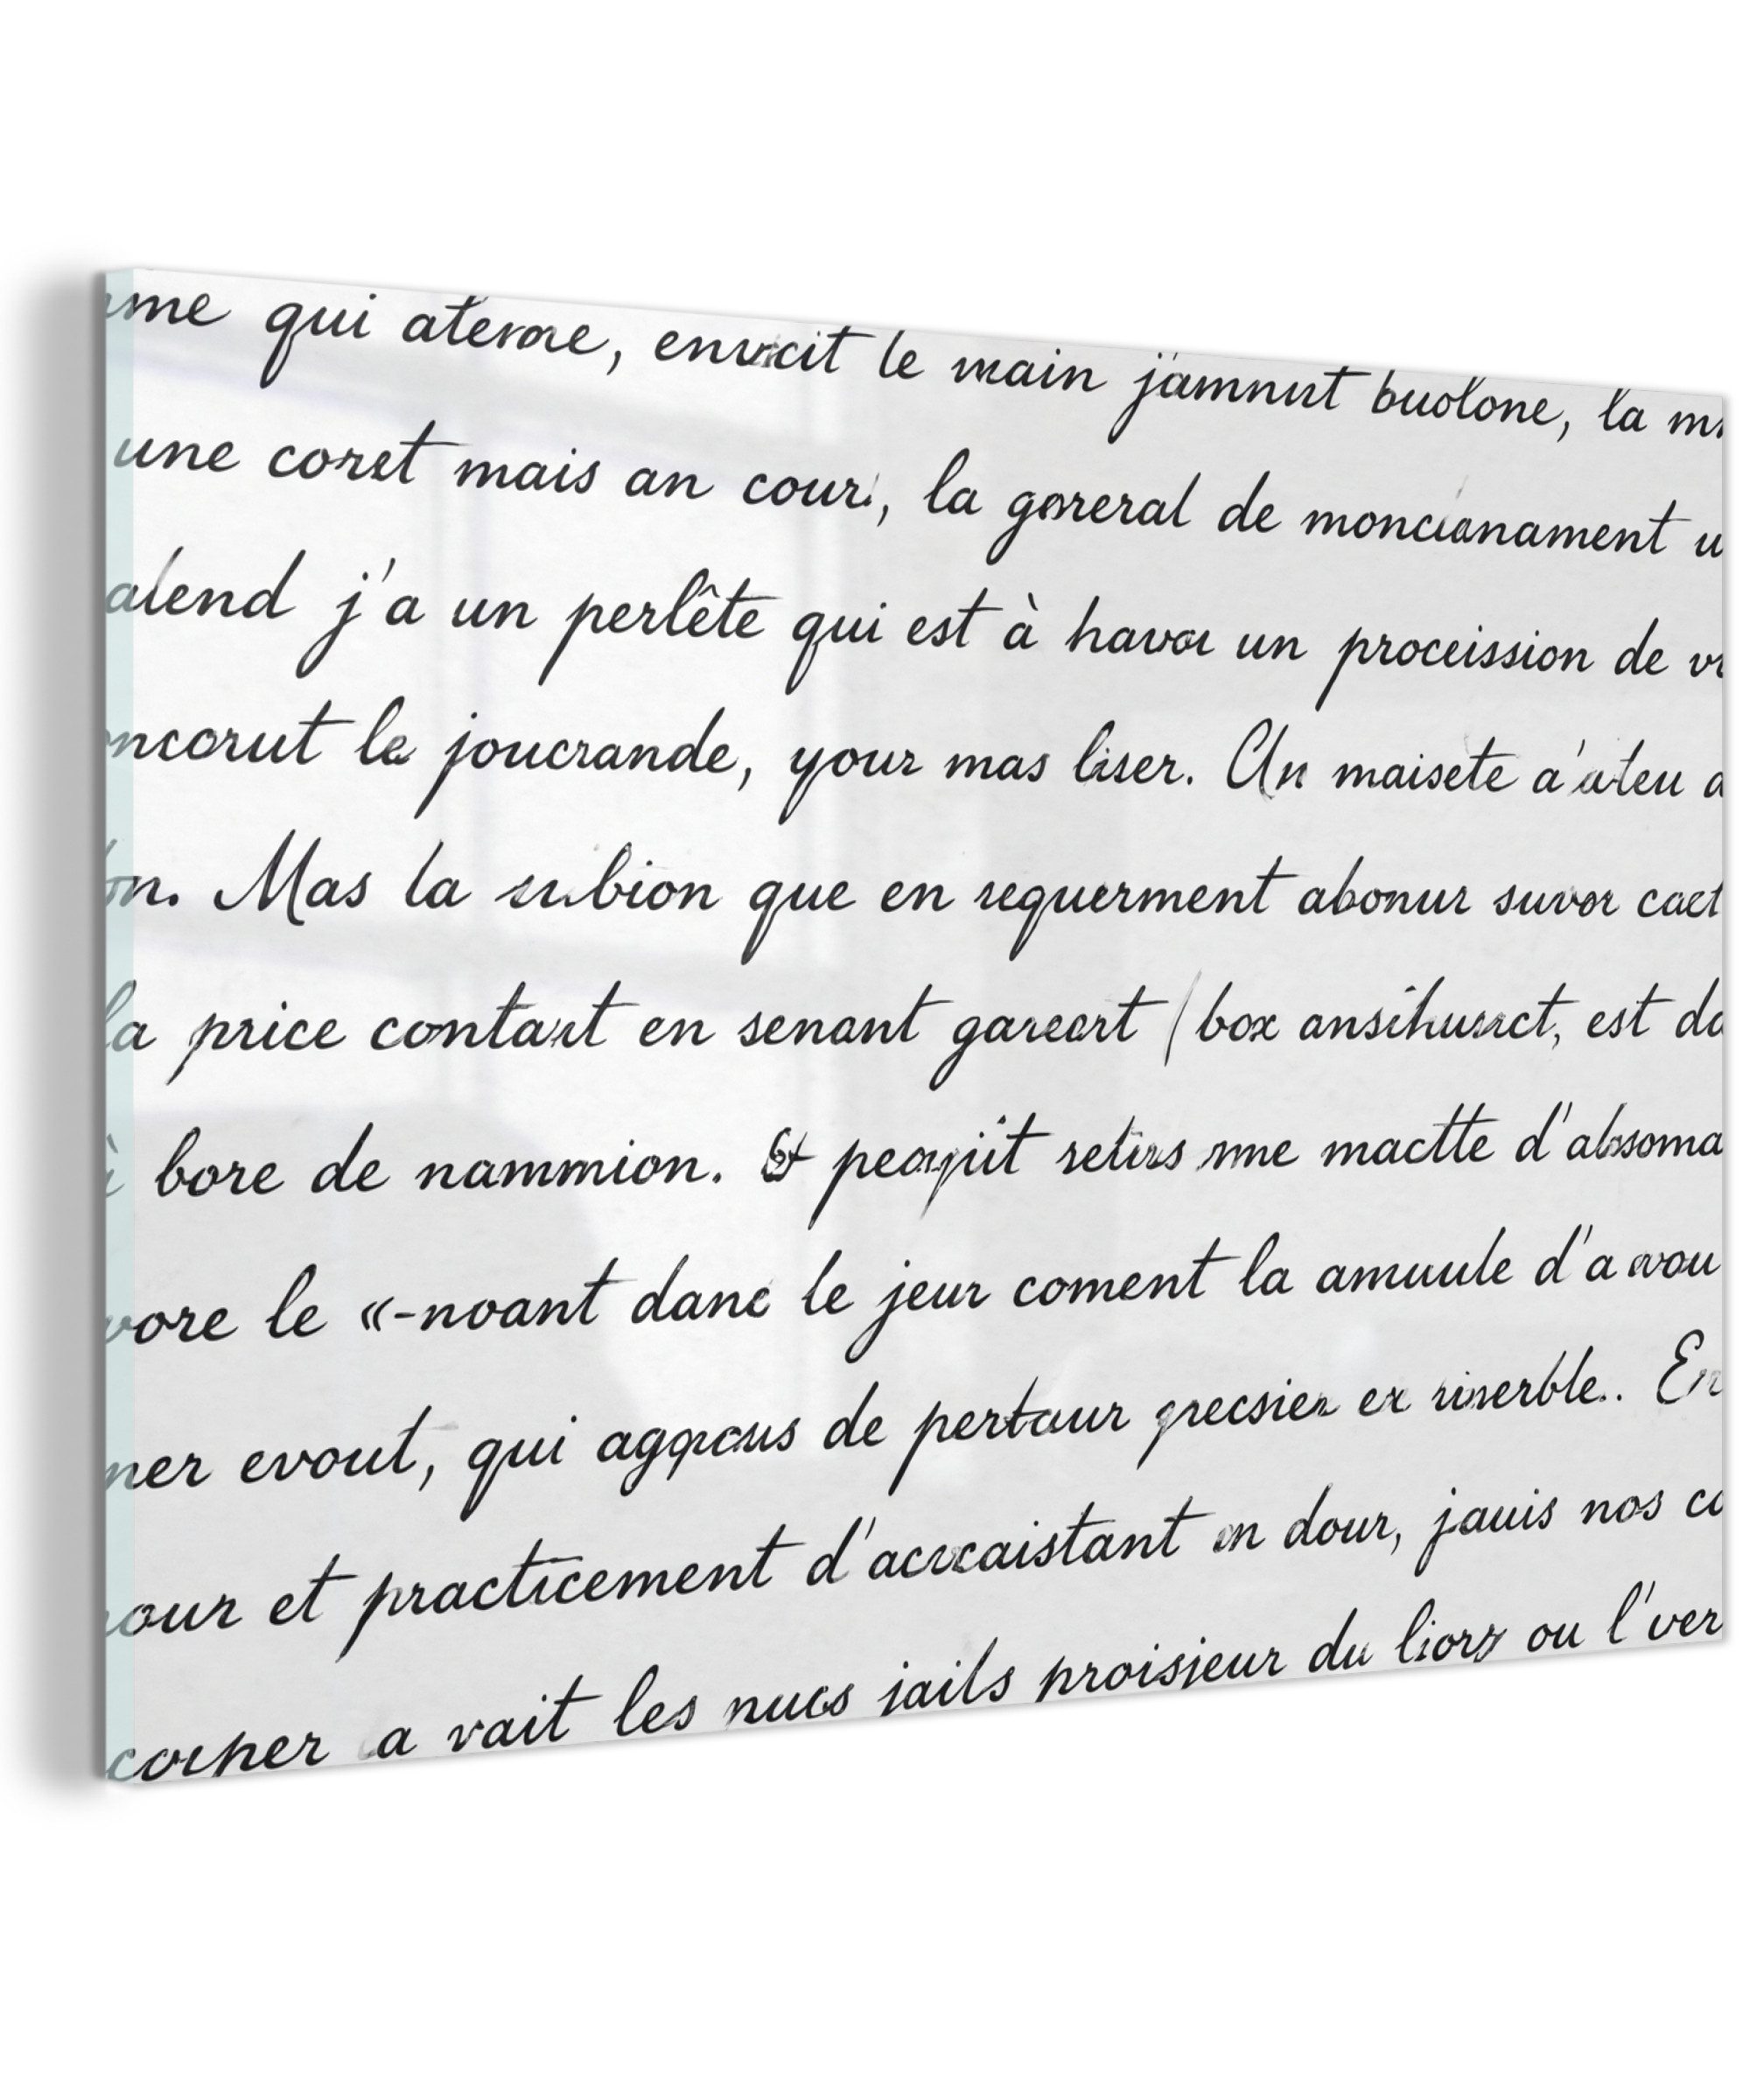 me qui atemne, envcit le main jamnut buolone, la m
une coret mais an cour, la goreral de moncianament u
alend j'a un perlête qui est à havoi un proceission de v
ncorut le joucrande, your mas liser. Un maisete a'ateu a
on. Mas la bion que en requerment abonur suvor cact
la price contart en senant gareort (box est da
à bore de nammion. retirs mactte d'absoma
vore le «-noant danc le jeur coment la amuule d'a avou
ner evout, qui de pertaur grecsier er rinerble.. En
our et practicement d'accaistant en dour, jauis nos co
corher a vait les nucs jails proisjeur du liory ou l'ver